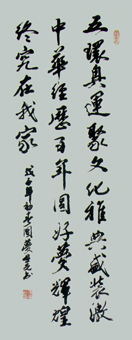 五環奧運聚文化雅典盛裝徽
中華經歷百年圓好夢輝煌
終究在我家
戊子年初書圓夢